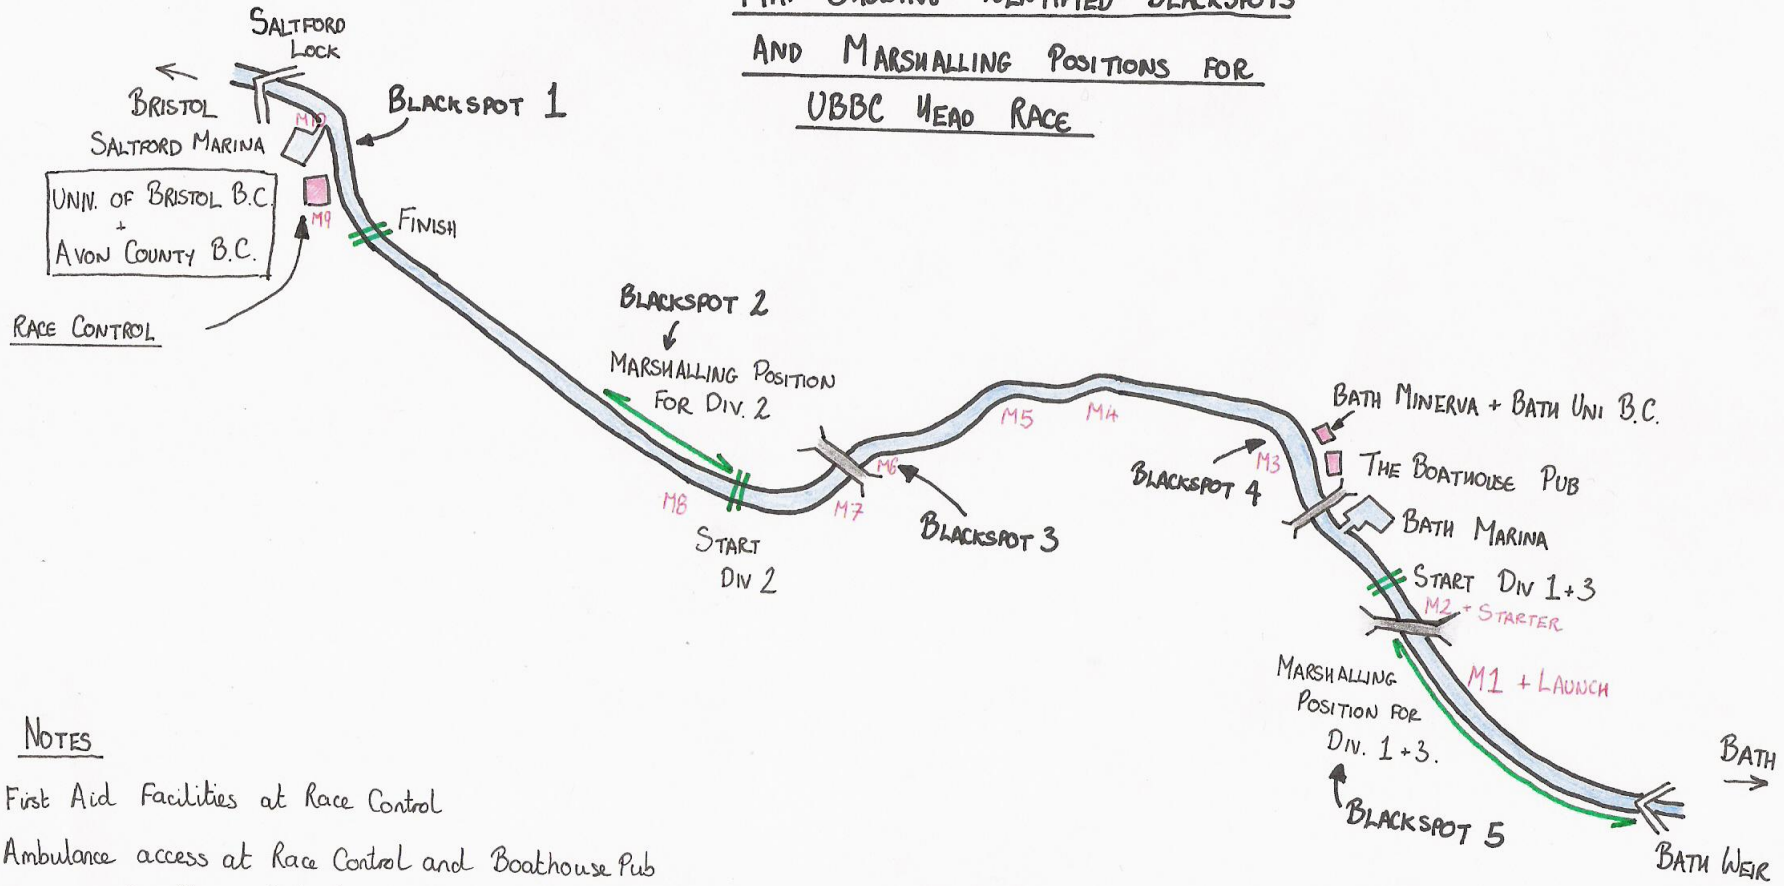 BLACKSPOTS
AND MARSHALLING POSITIONS FOR
UBBC HEAD RACE
SALTFORD
LOCK
BRISTOL
BLACKSPOT 1
M10
SALTFORD MARINA
UNIV. OF BRISTOL B.C.
+
AVON COUNTY B.C.
M9
FINISH
RACE CONTROL
BLACKSPOT 2
MARSHALLING POSITION
FOR DIV. 2
M8
START
DIV 2
M7
M6
BLACKSPOT 3
M5
M4
BATH MINERVA + BATH UNI B.C.
M3
BLACKSPOT 4
THE BOATHOUSE PUB
BATH MARINA
START DIV 1+3
M2 + STARTER
M1 + LAUNCH
MARSHALLING
POSITION FOR
DIV. 1+3.
BLACKSPOT 5
BATH
BATH WEIR
NOTES
First Aid Facilities at Race Control
Ambulance access at Race Control and Boathouse Pub